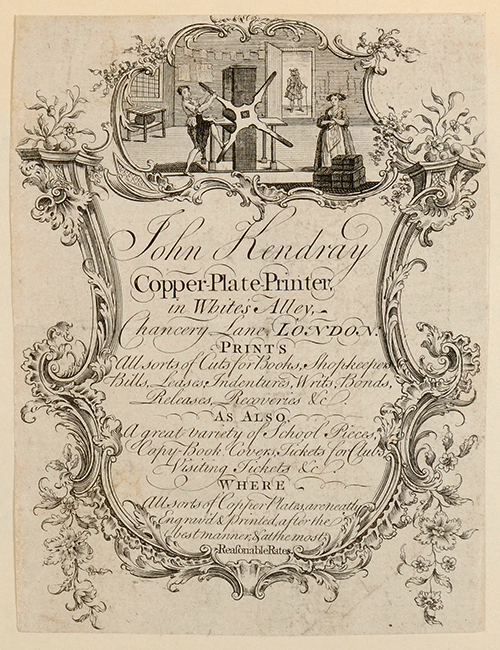 John Kendray
Copper-Plate-Printer,
in White's Alley,
Chancery Lane, LONDON.
PRINTS
All sorts of Cuts for Books, Shopkeepers
Bills, Leases, Indentures, Writs, Bonds,
Releases, Recoveries &c.
AS ALSO,
A great variety of School Pieces,
Copy-Book Covers, Tickets for Clubs
Visiting Tickets &c.
WHERE
All sorts of Copper Plates, are neatly
Engrav'd & Printed, after the
best manner, & at the most
Reaſonable Rates